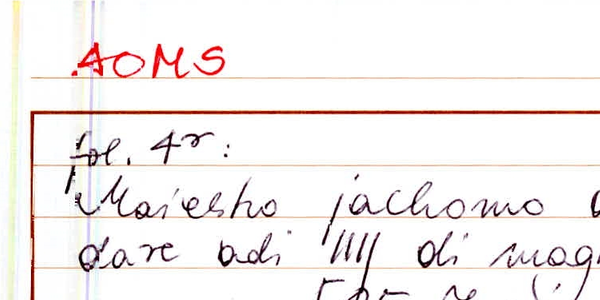 AOMS
fol. 4r:
Maiestro jachomo
dare adi IIIJ di mag